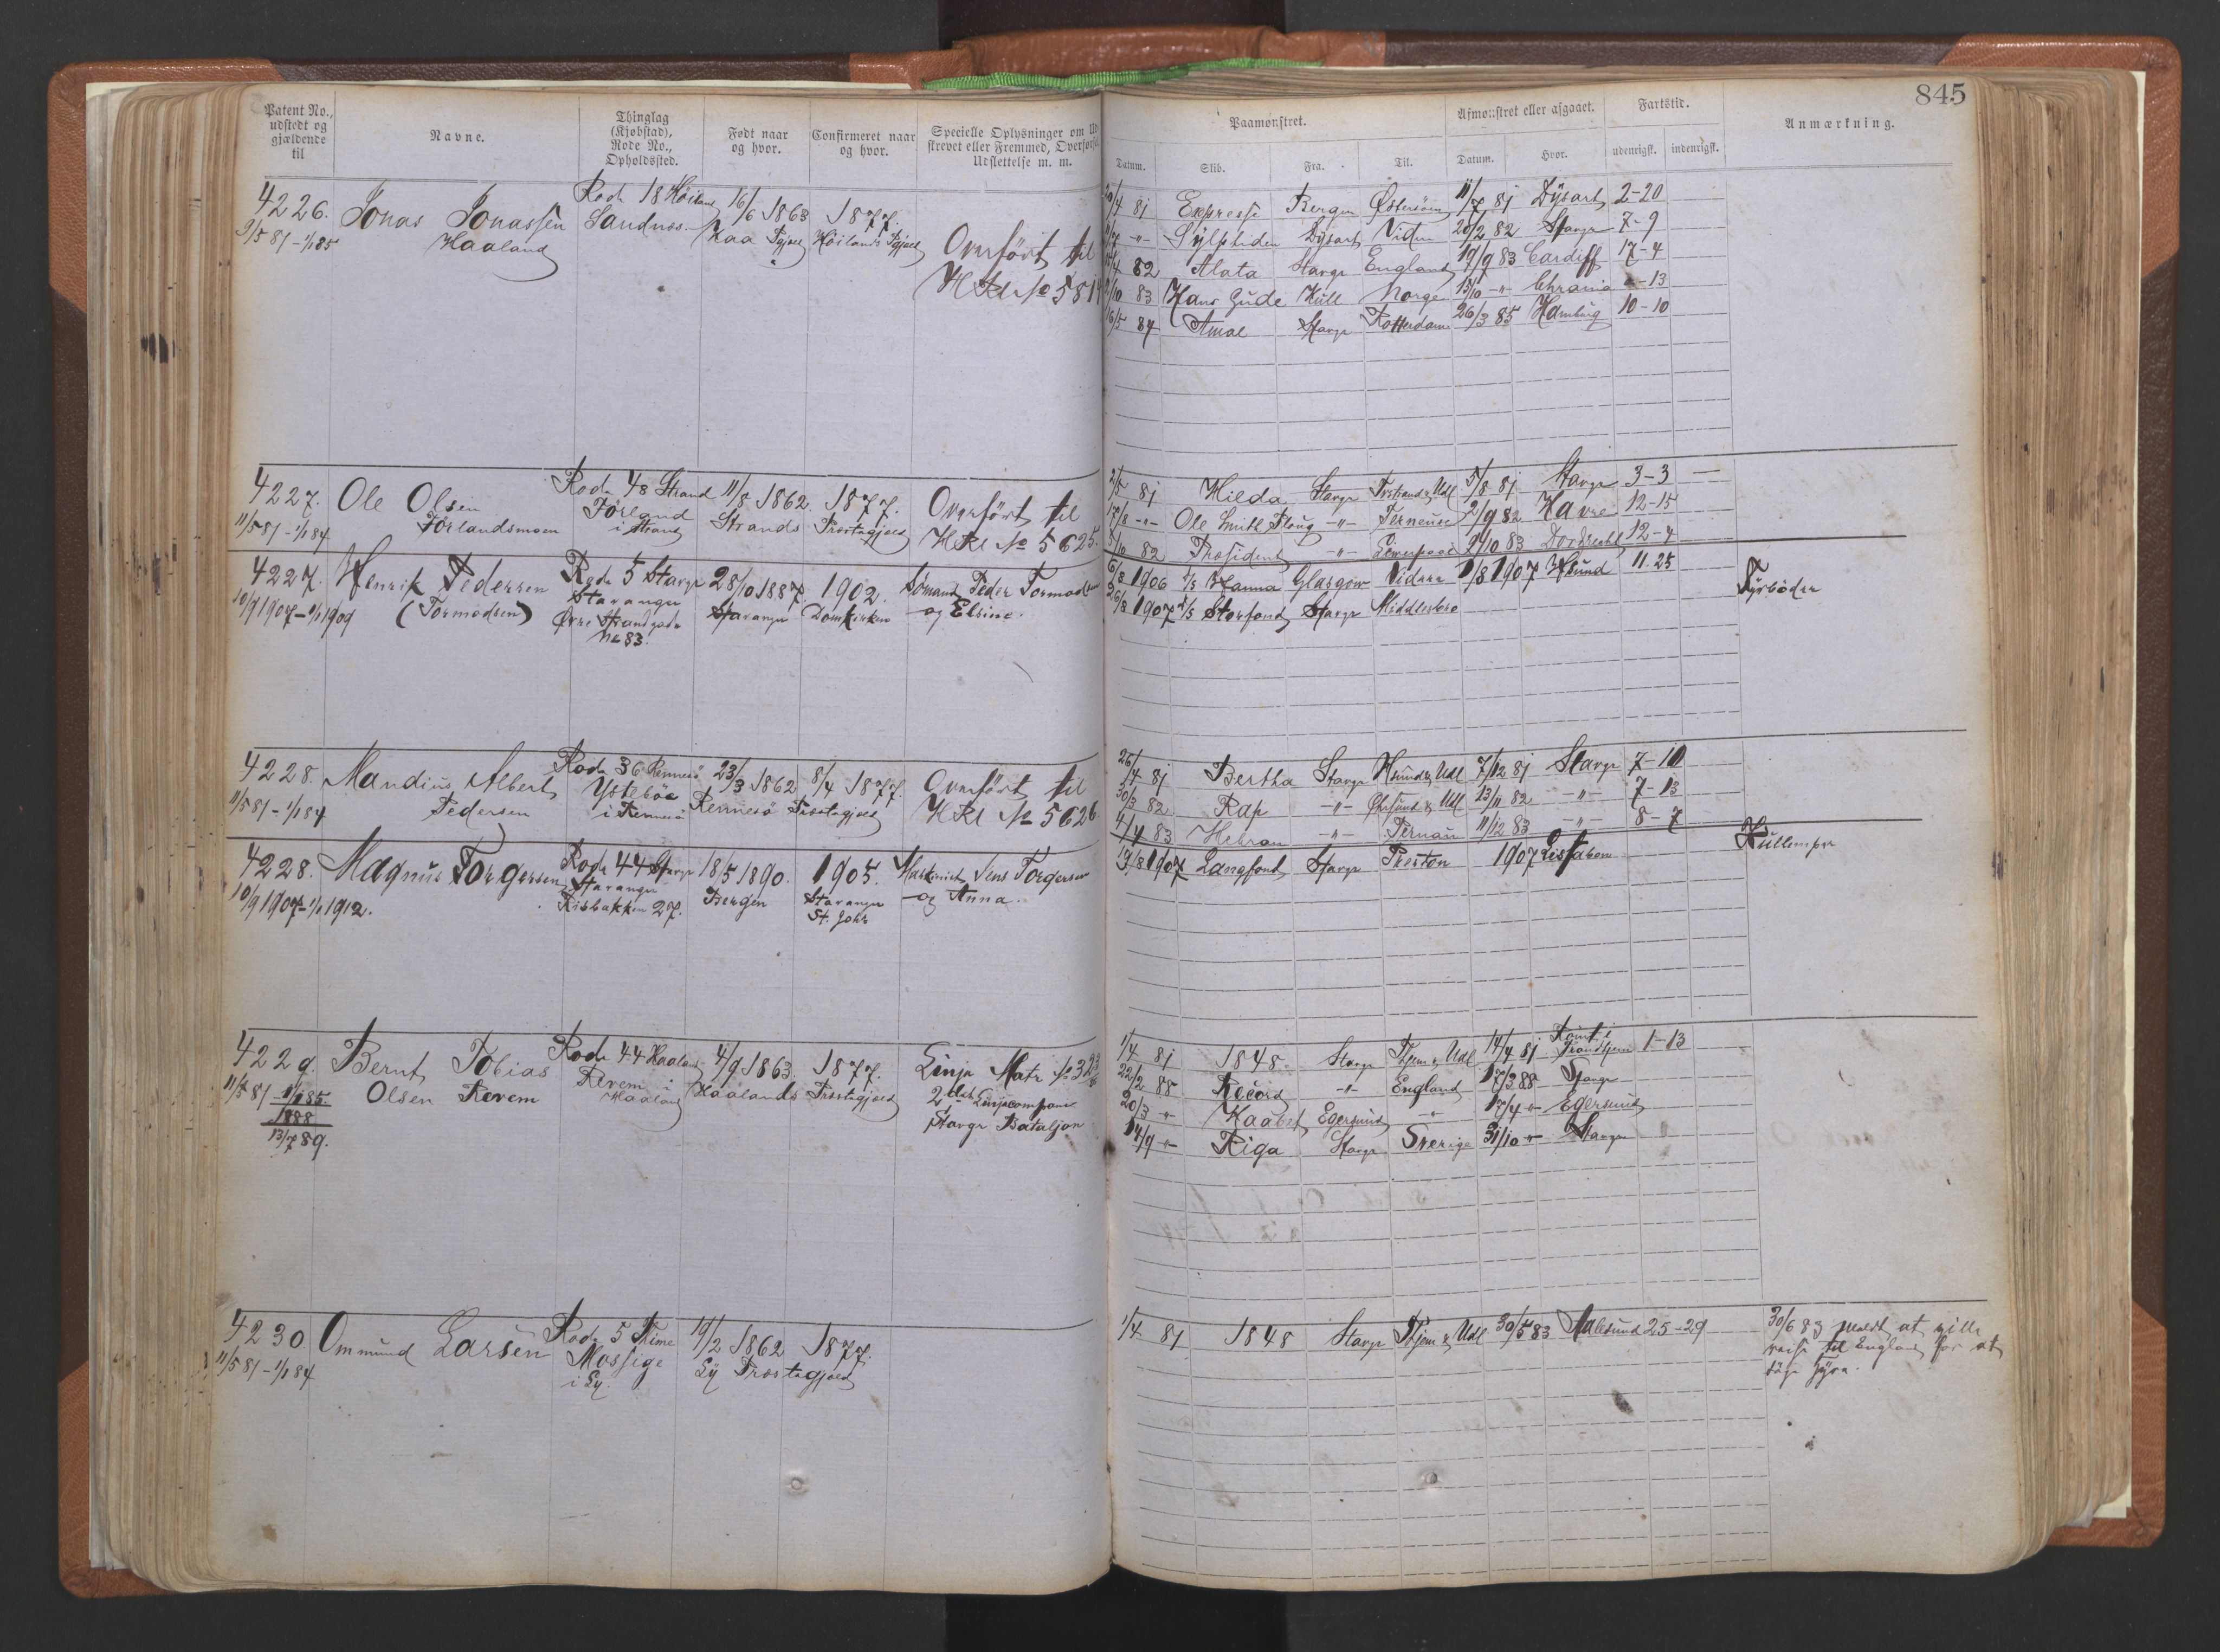 845
Patent No., udstedt og gjældende til
Navne.
Thinglag (Kjøbstad), Rode No., Opholdssted.
Født naar og hvor.
Confirmeret naar og hvor.
Specielle Oplysninger om Ud
skrevet eller Fremmed, Overført,
Udslettelse m. m.
Paamønstret.
Afmønstret eller afgaaet.
Fartstid.
Anmærkning.
Datum. Skib. Fra. Til. Datum. Hvor. udenrigsk. indenrigsk.
4226. Jonas Jonassen Rode 18 Høiland 16/6 1863 1877.
9/5 81 - 1/1 85 Haaland Sandnes Haa Pgjæld Høilands Pgjæld
Overført til
H Rl No 581
4 81 Expresse Bergen Østersøen 11/7 81 Dysart 2-20
-"- Sylphiden Dysart Viden 20/2 82 Stavgr 7-9
82 Alata Stavgr England 19/9 83 Cardiff 17-4
10 83 Hans Gude Hull Norge 15/10 -"- Chrania -13
16/5 84 Amal Stavgr Rotterdam 26/3 85 Hamburg 10-10
4227. Ole Olsen Rode 48 Strand 11/8 1862. 1877. Overført til
11/5 81 - 1/1 84 Førlandsmoen Førland i Strand Strands Præstegjæld H Rl No 5625.
2/5 81 Hilda Stavgr & Udl 5/8 81 Stavgr 3-3
17/8 -"- Ole Smith Ploug -"- Terneuse 2/9 82 Havre 12-15
5/10 82 Præsident -"- Liverpool 2/10 83 Dordrecht 12-4
4227. Henrik Pedersen Rode 5 Stavgr 28/10 1887. 1902. Sømand Peder Tormodsen
10/9 1907 - 1/1 1909 (Tormodsen) Stavanger Stavanger Domkirken og Elsine.
Øvre Strandgade
No 83.
6/3 1906 Hanna Glasgow Videre 1/8 1907 Hsund 11.25 Fyrbøder
26/8 1907 Storfond Stavgr Middlesbro
4228. Mandius Albert Rode 36 Rennesø 23/3 1862 8/4 1877. Overført til
11/5 81 - 1/1 84 Pedersen Ystebøe i Rennesø Rennesø Præstegjæld H Rl No 5626
26/4 81 Bertha Stavgr Hsund & Udl 7/12 81 Stavgr 7-10
30/3 82 Rap -"- & Udl 13/11 82 -"- 7-13
4/4 83 Hebron -"- Pernau 11/12 83 -"- 8-7
4228. Magnus Torgersen Rode 44 Stavgr 18/5 1890. 1905. Maskinist Jens Torgersen
10/9 1907 - 1/1 1912. Stavanger Bergen Stavanger og Anna.
Risbakken 27. St. Joh
19/8 1907 Langfond Stavgr Preston 1907 Lissabon Kullemper
4229. Bernt Tobias Rode 44 Haaland 4/9 1863. 1877. Linje Matr No 323
11/5 81 - 1/1 85. Olsen Revem Revem i Haaland Haalands Præstegjæld 2det Linjecompani
1888 Stavgr Bataljon
13/7 89.
1/4 81 1848 Stavgr Thjem & Udl 14/4 81 Rømt i Trondhjem 1-13
22/2 88 Record " England 17/3 88 Stavgr
20/3 " Kaabet Egersund " 17/4 " Egersund
14/9 " Riga Stavgr Sverige 31/10 " Stavgr
4230. Ommund Larsen Rode 5 Time 19/2 1862 1877.
11/5 81 - 1/1 84 Mossige i Ly. Ly Præstegjæld
1/4 81 1848 Stavgr Thjem & Udl 30/5 83 Aalesund 25-29
30/6 83 meldt at ville
reise til England for at
søge Hyre.